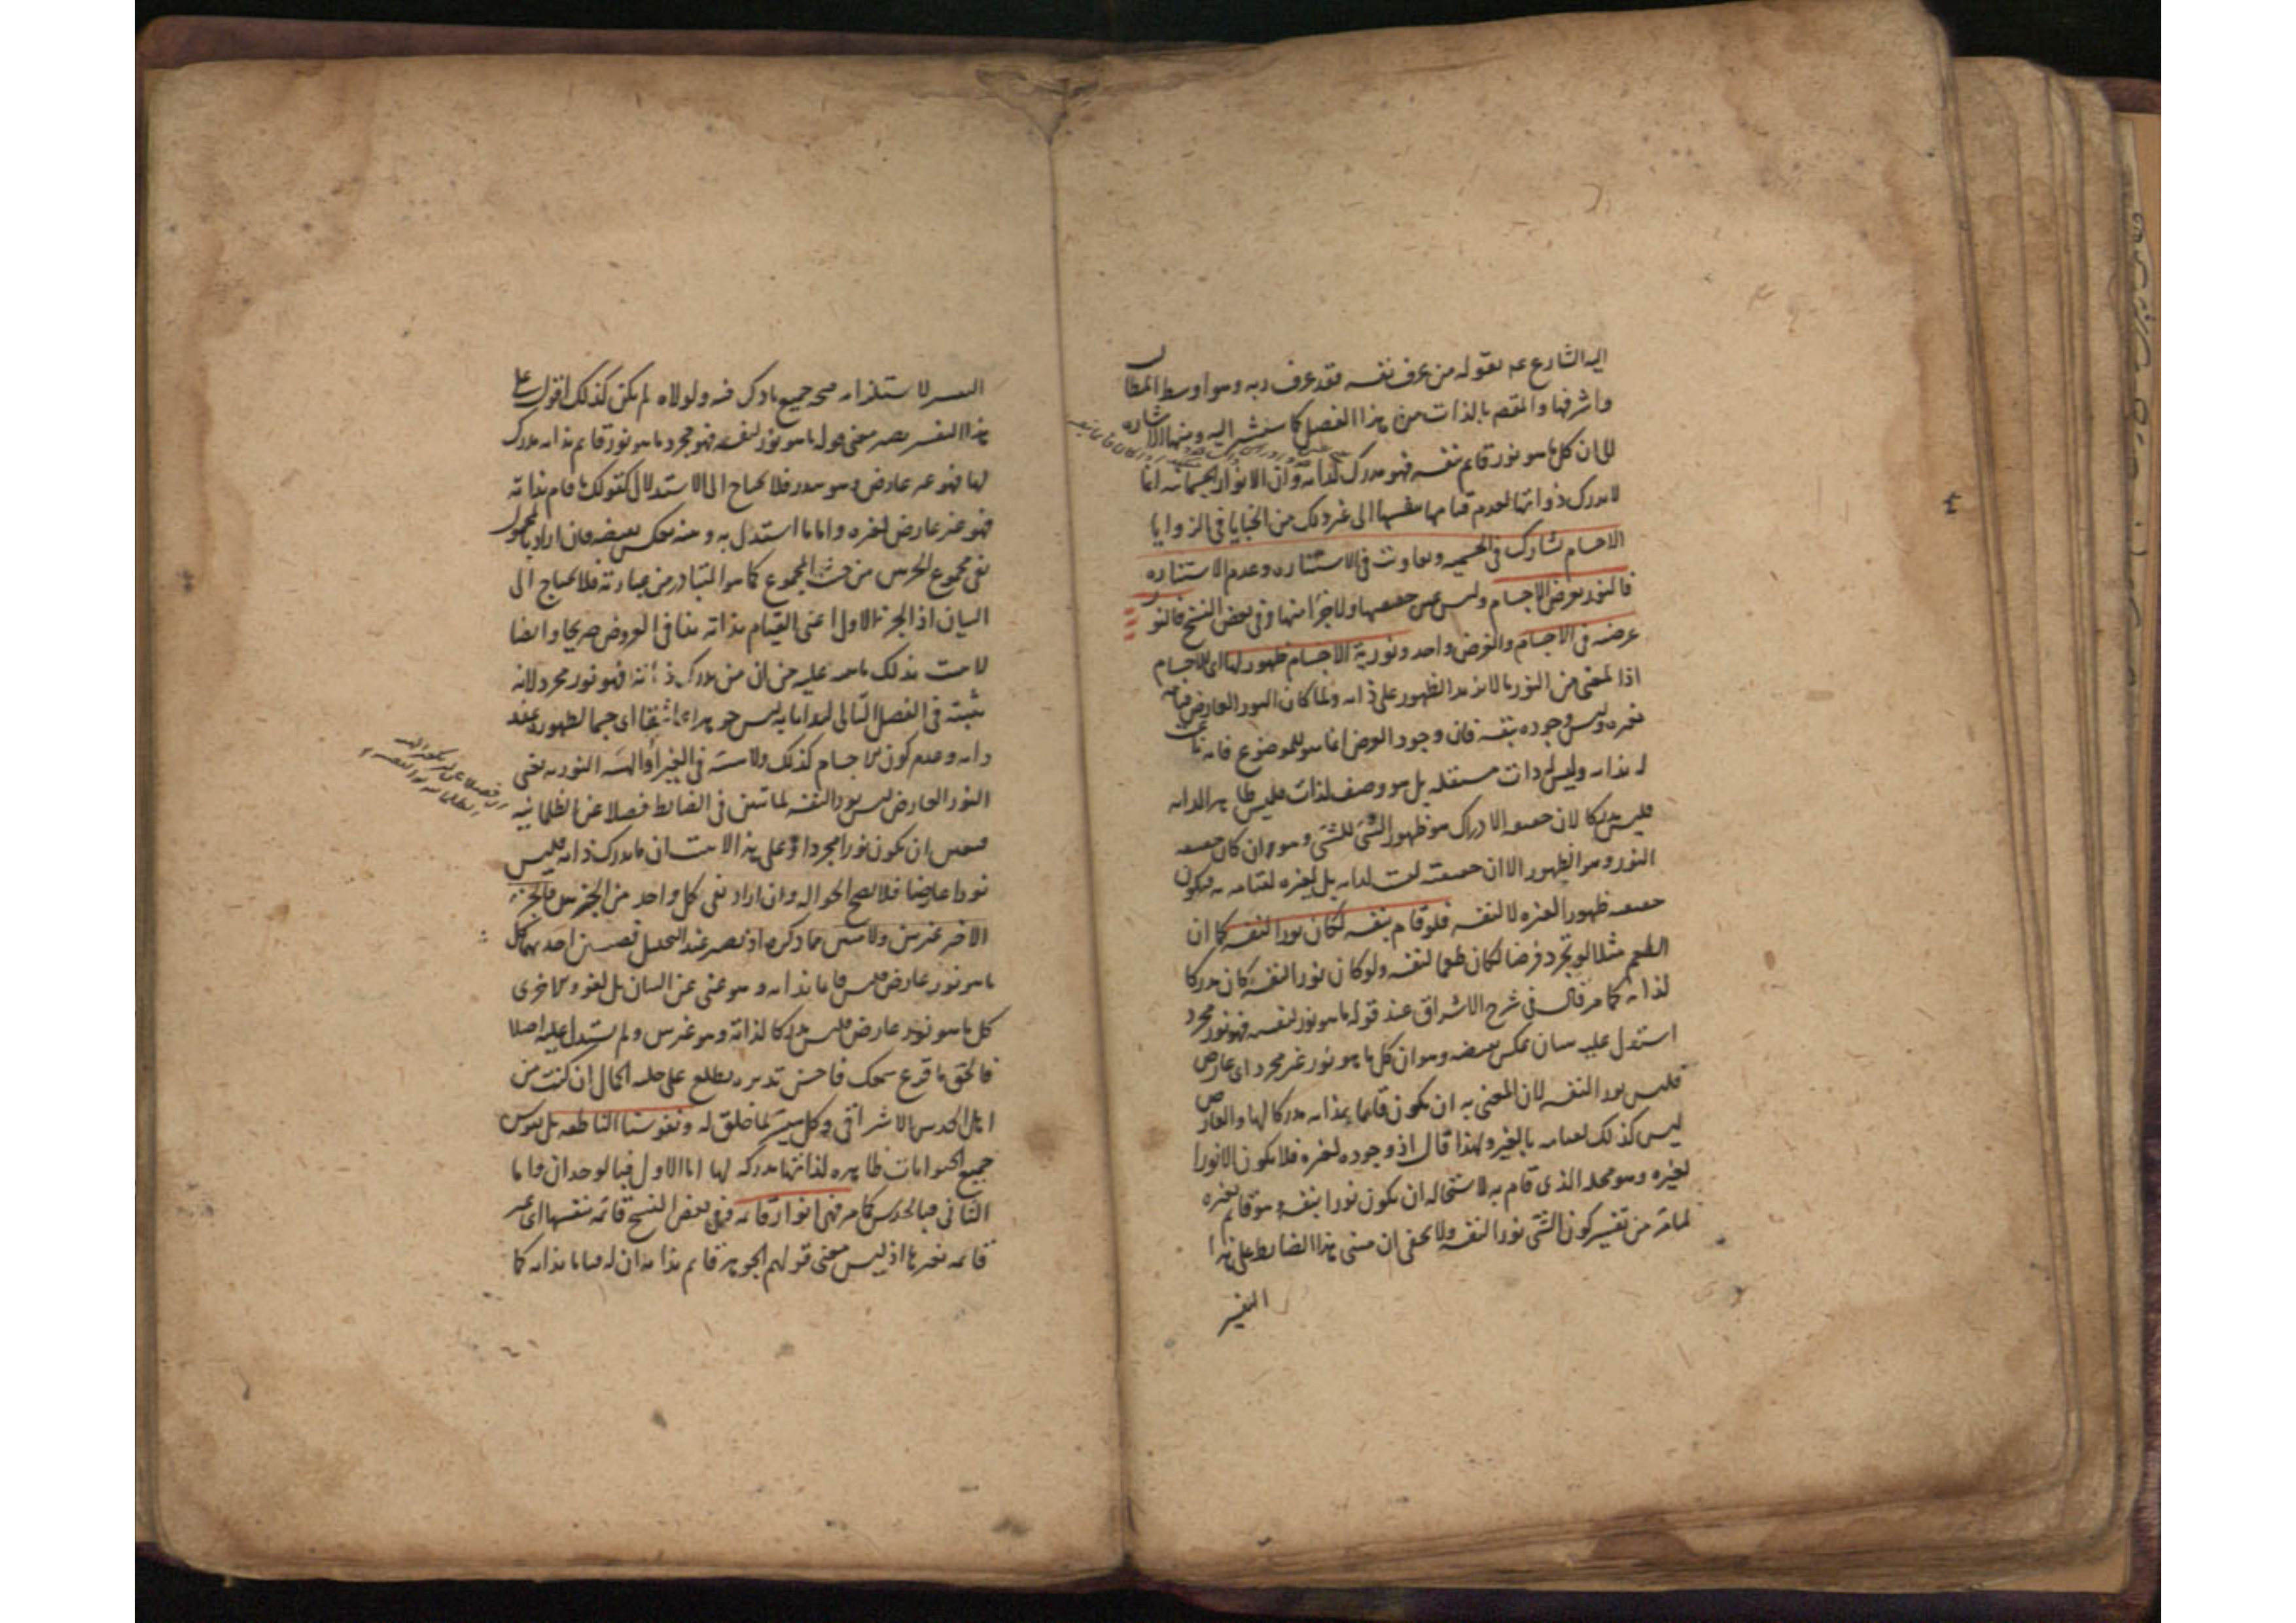 اليه الشارع عم بقوله من عرف نفسه فقد عرف ربه وهو اوسط المطالب
واشرفها والمقصد بالذات من هذا الفصل كما سنشير اليه ومنها الاشارة
الى ان كل ما هو نور قائم بنفسه فهو مدرك لذاته وان الانوار الجسمانية انما
لا تدرك ذواتها لعدم قيامها بنفسها الى غير ذلك من الخبايا في الزوايا
الاجسام تشارك في الجسمية وتفاوت في الاستنارة وعدم الاستنارة
فالنور يعرض الاجسام وليس عين حقيقتها ولا جزأ منها وفي بعض النسخ فالنور
عرضه في الاجسام والعرض واحد ونورية الاجسام ظهور لها اي للاجسام
اذ المعنى من النور ما لا يزيد الظهور على ذاته ولما كان النور العارض قيامه
بغيره وليس وجوده بنفسه فان وجود العرض انما هو للموضوع فانه ناعت
له بذاته وليس له ذات مستقلة بل هو وصف لذات فليس ظاهرا لذاته
فليس مدركا لان حقيقة الادراك هو ظهور الشئ للشئ وهو وان كان حقيقته
النور وهو الظهور الا ان حقيقته ليست لذاته بل لغيره لقيامه به فيكون
حقيقته ظهورا لغيره لا لنفسه فلو قام بنفسه لكان نورا لنفسه كما ان
الطعم مثلا لو تجرد فرضا لكان طعما لنفسه ولو كان نورا لنفسه كان مدركا
لذاته كما مر قال في شرح الاشراق عند قوله ما هو نور لنفسه فهو نور مجرد
استدل عليه ببيان عكس نقيضه وهو ان كل ما هو نور غير مجرد اي عارض
فليس نورا لنفسه لان المعنى به ان يكون قائما بذاته مدركا لها والعارض
ليس كذلك لقيامه بالغير ولهذا قال اذ وجوده لغيره فلا يكون الا نورا
لغيره وهو محله الذي قام به لاستحالة ان يكون نورا بنفسه وهو قائم بغيره
لما مر من تفسير كون الشئ نورا لنفسه ولا يخفى ان مبنى هذا الضابط على هذا
التفسير
التفسير لاستلزامه صحة جميع ما ذكر فيه ولولاه لم يكن كذلك اقول على
هذا التفسير يصير معنى قوله ما هو نور لنفسه فهو مجرد ما هو نور قائم بذاته مدرك
لها فهو غير عارض وهو هدر فلا يحتاج الى الاستدلال كقولك ما قام بذاته
فهو غير عارض لغيره واما ما استدل به ومنه بعكس نقيضه فان اراد بالمحمول
نفي مجموع الجزئين من حيث المجموع كما هو المتبادر من عبارته فلا يحتاج الى
البيان اذ الجزء الاول اعني القيام بذاته ينافي العروض صريحا وايضا
لا يثبت بذلك ما حمله عليه من ان من يدرك ذاته فهو نور مجرد لانه
يثبته في الفصل التالي لهذا بانه ليس جوهرا غاسقا اي جسما لظهوره عند
ذاته وعدم كون الاجسام كذلك ولا هيئة في الغير اذ الهيئة النورية يعني
النور العارض ليس نورا لنفسه لما تبين في الضابط فضلا عن الظلمانية
فتعين ان يكون نورا مجردا وعلى هذا لا يثبت ان ما يدرك ذاته فليس
نورا عارضا فلا يصح الحوالة وان اراد نفي كل واحد من الجزئين فالجزء
الاخير غير بين ولا مبين مما ذكره اذ يصير عند التحليل قضيتين احديهما كل
ما هو نور عارض فليس قائما بذاته وهو غني عن البيان بل لغو والاخرى
كل ما هو نور عارض فليس مدركا لذاته وهو غير بين ولم يستدل عليه اصلا
فالحق ما قرع سمعك فاحسن تدبره تطلع على جلية الحال ان كنت من
اهل الحدس الاشراقي وكل ميسر لما خلق له ونفوسنا الناطقة بل نفوس
جميع الحيوانات ظاهرة لذاتها مدركة لها اما الاول فبالوجدان واما
الثاني فبالحدس كما مر فهي انوار قائمة وفي بعض النسخ قائمة بنفسها اي غير
قائمة بغيرها اذ ليس معنى قولهم الجوهر قائم بذاته ان له قياما بذاته كما